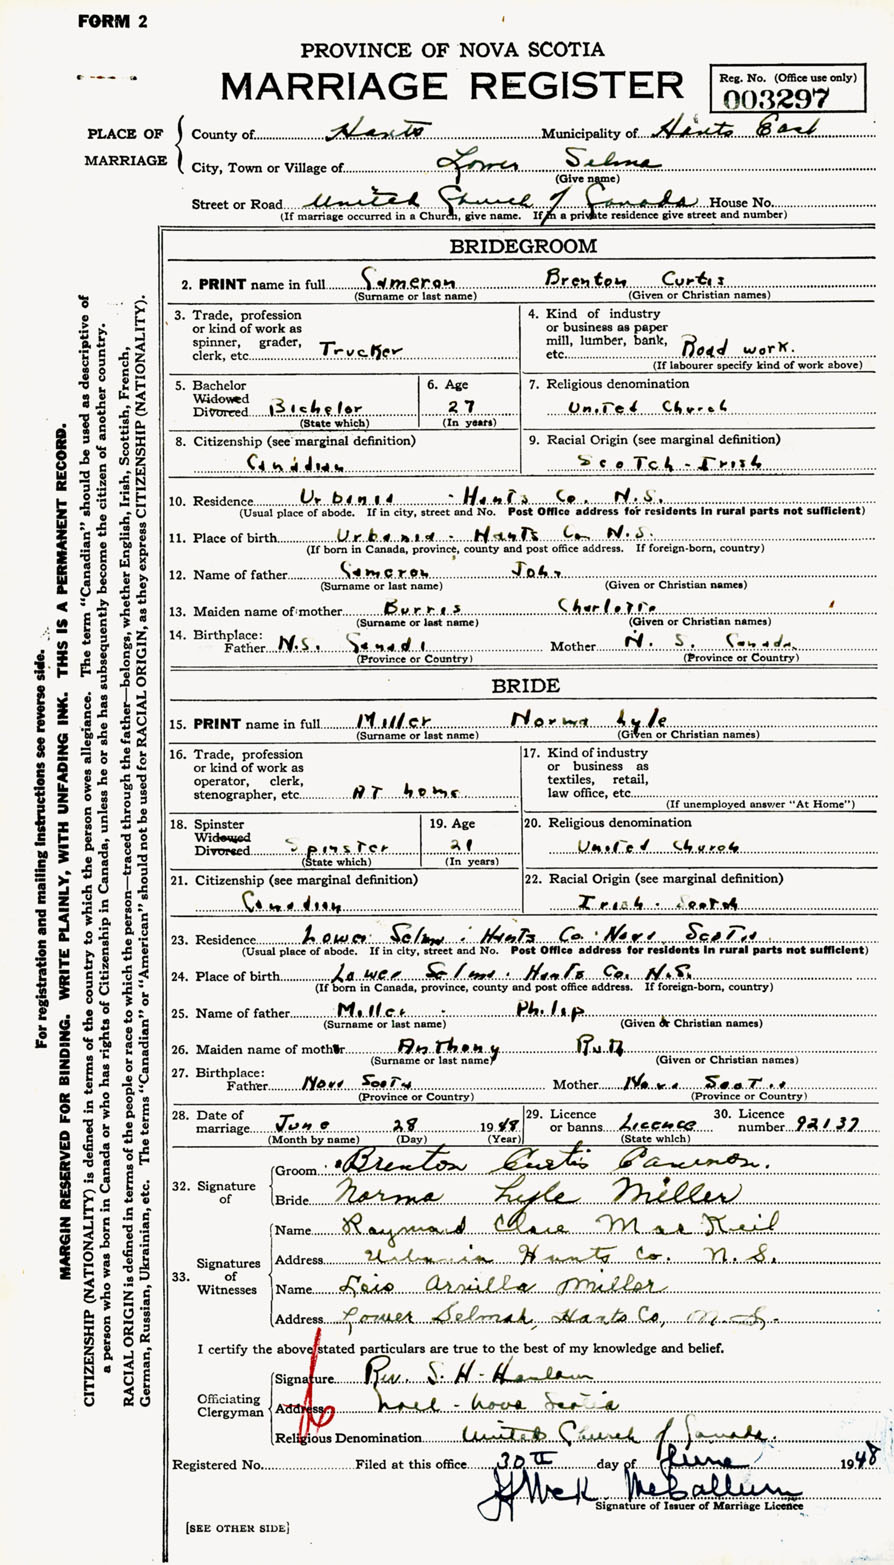 FORM 2
PROVINCE OF NOVA SCOTIA
MARRIAGE REGISTER
Reg. No. (Office use only)
003297
PLACE OF MARRIAGE
County of Hants Municipality of Hants East
City, Town or Village of Lower Selma
(Give name)
Street or Road United Church of Canada House No.
(If marriage occurred in a Church, give name. If in a private residence give street and number)
BRIDEGROOM
2. PRINT name in full Cameron Brenton Curtis
(Surname or last name) (Given or Christian names)
3. Trade, profession or kind of work as spinner, grader, clerk, etc. Trucker
4. Kind of industry or business as paper mill, lumber, bank, etc. Road work.
(If labourer specify kind of work above)
5. Bachelor Widowed Divorced Bichelor
(State which)
6. Age 27
(In years)
7. Religious denomination United Church
8. Citizenship (see marginal definition) Canadian
9. Racial Origin (see marginal definition) Scotch-Irish
10. Residence Urbania - Hants Co. N.S.
(Usual place of abode. If in city, street and No. Post Office address for residents in rural parts not sufficient)
11. Place of birth Urbania - Hants Co. N.S.
(If born in Canada, province, county and post office address. If foreign-born, country)
12. Name of father Cameron John
(Surname or last name) (Given or Christian names)
13. Maiden name of mother Burris Charlotte
(Surname or last name) (Given or Christian names)
14. Birthplace: Father N.S. Canada Mother N. S. Canada
(Province or Country) (Province or Country)
BRIDE
15. PRINT name in full Miller Norma Lyle
(Surname or last name) (Given or Christian names)
16. Trade, profession or kind of work as operator, clerk, stenographer, etc. At home
17. Kind of industry or business as textiles, retail, law office, etc.
(If unemployed answer "At Home")
18. Spinster Widowed Divorced Spinster
(State which)
19. Age 21
(In years)
20. Religious denomination United Church
21. Citizenship (see marginal definition) Canadian
22. Racial Origin (see marginal definition) Irish - Scotch
23. Residence Lower Selma - Hants Co. Nova Scotia
(Usual place of abode. If in city, street and No. Post Office address for residents in rural parts not sufficient)
24. Place of birth Lower Selma - Hants Co. N.S.
(If born in Canada, province, county and post office address. If foreign-born, country)
25. Name of father Miller - Philip
(Surname or last name) (Given or Christian names)
26. Maiden name of mother Anthony Ruth
(Surname or last name) (Given or Christian names)
27. Birthplace: Father Nova Scotia Mother Nova Scotia
(Province or Country) (Province or Country)
28. Date of marriage June 28 1948
(Month by name) (Day) (Year)
29. Licence or banns Licence
(State which)
30. Licence number 92137
32. Signature of
Groom Brenton Curtis Cameron.
Bride Norma Lyle Miller
33. Signatures of Witnesses
Name Raymond Clare MacKeil
Address Urbania Hants Co. N.S.
Name Lois Arvilla Miller
Address Lower Selmah, Hants Co, N.S.
I certify the above stated particulars are true to the best of my knowledge and belief.
Officiating Clergyman
Signature Rev. S. H.
Address Noel - Nova Scotia
Religious Denomination United Church of Canada.
Registered No. Filed at this office 30th day of June 1948
McCallum
Signature of Issuer of Marriage Licence
[SEE OTHER SIDE]
For registration and mailing instructions see reverse side.
MARGIN RESERVED FOR BINDING. WRITE PLAINLY, WITH UNFADING INK. THIS IS A PERMANENT RECORD.
CITIZENSHIP (NATIONALITY) is defined in terms of the country to which the person owes allegiance. The term "Canadian" should be used as descriptive of
a person who was born in Canada or who has rights of Citizenship in Canada, unless he or she has subsequently become the citizen of another country.
RACIAL ORIGIN is defined in terms of the people or race to which the person—traced through the father—belongs, whether English, Irish, Scottish, French,
German, Russian, Ukrainian, etc. The terms "Canadian" or "American" should not be used for RACIAL ORIGIN, as they express CITIZENSHIP (NATIONALITY).